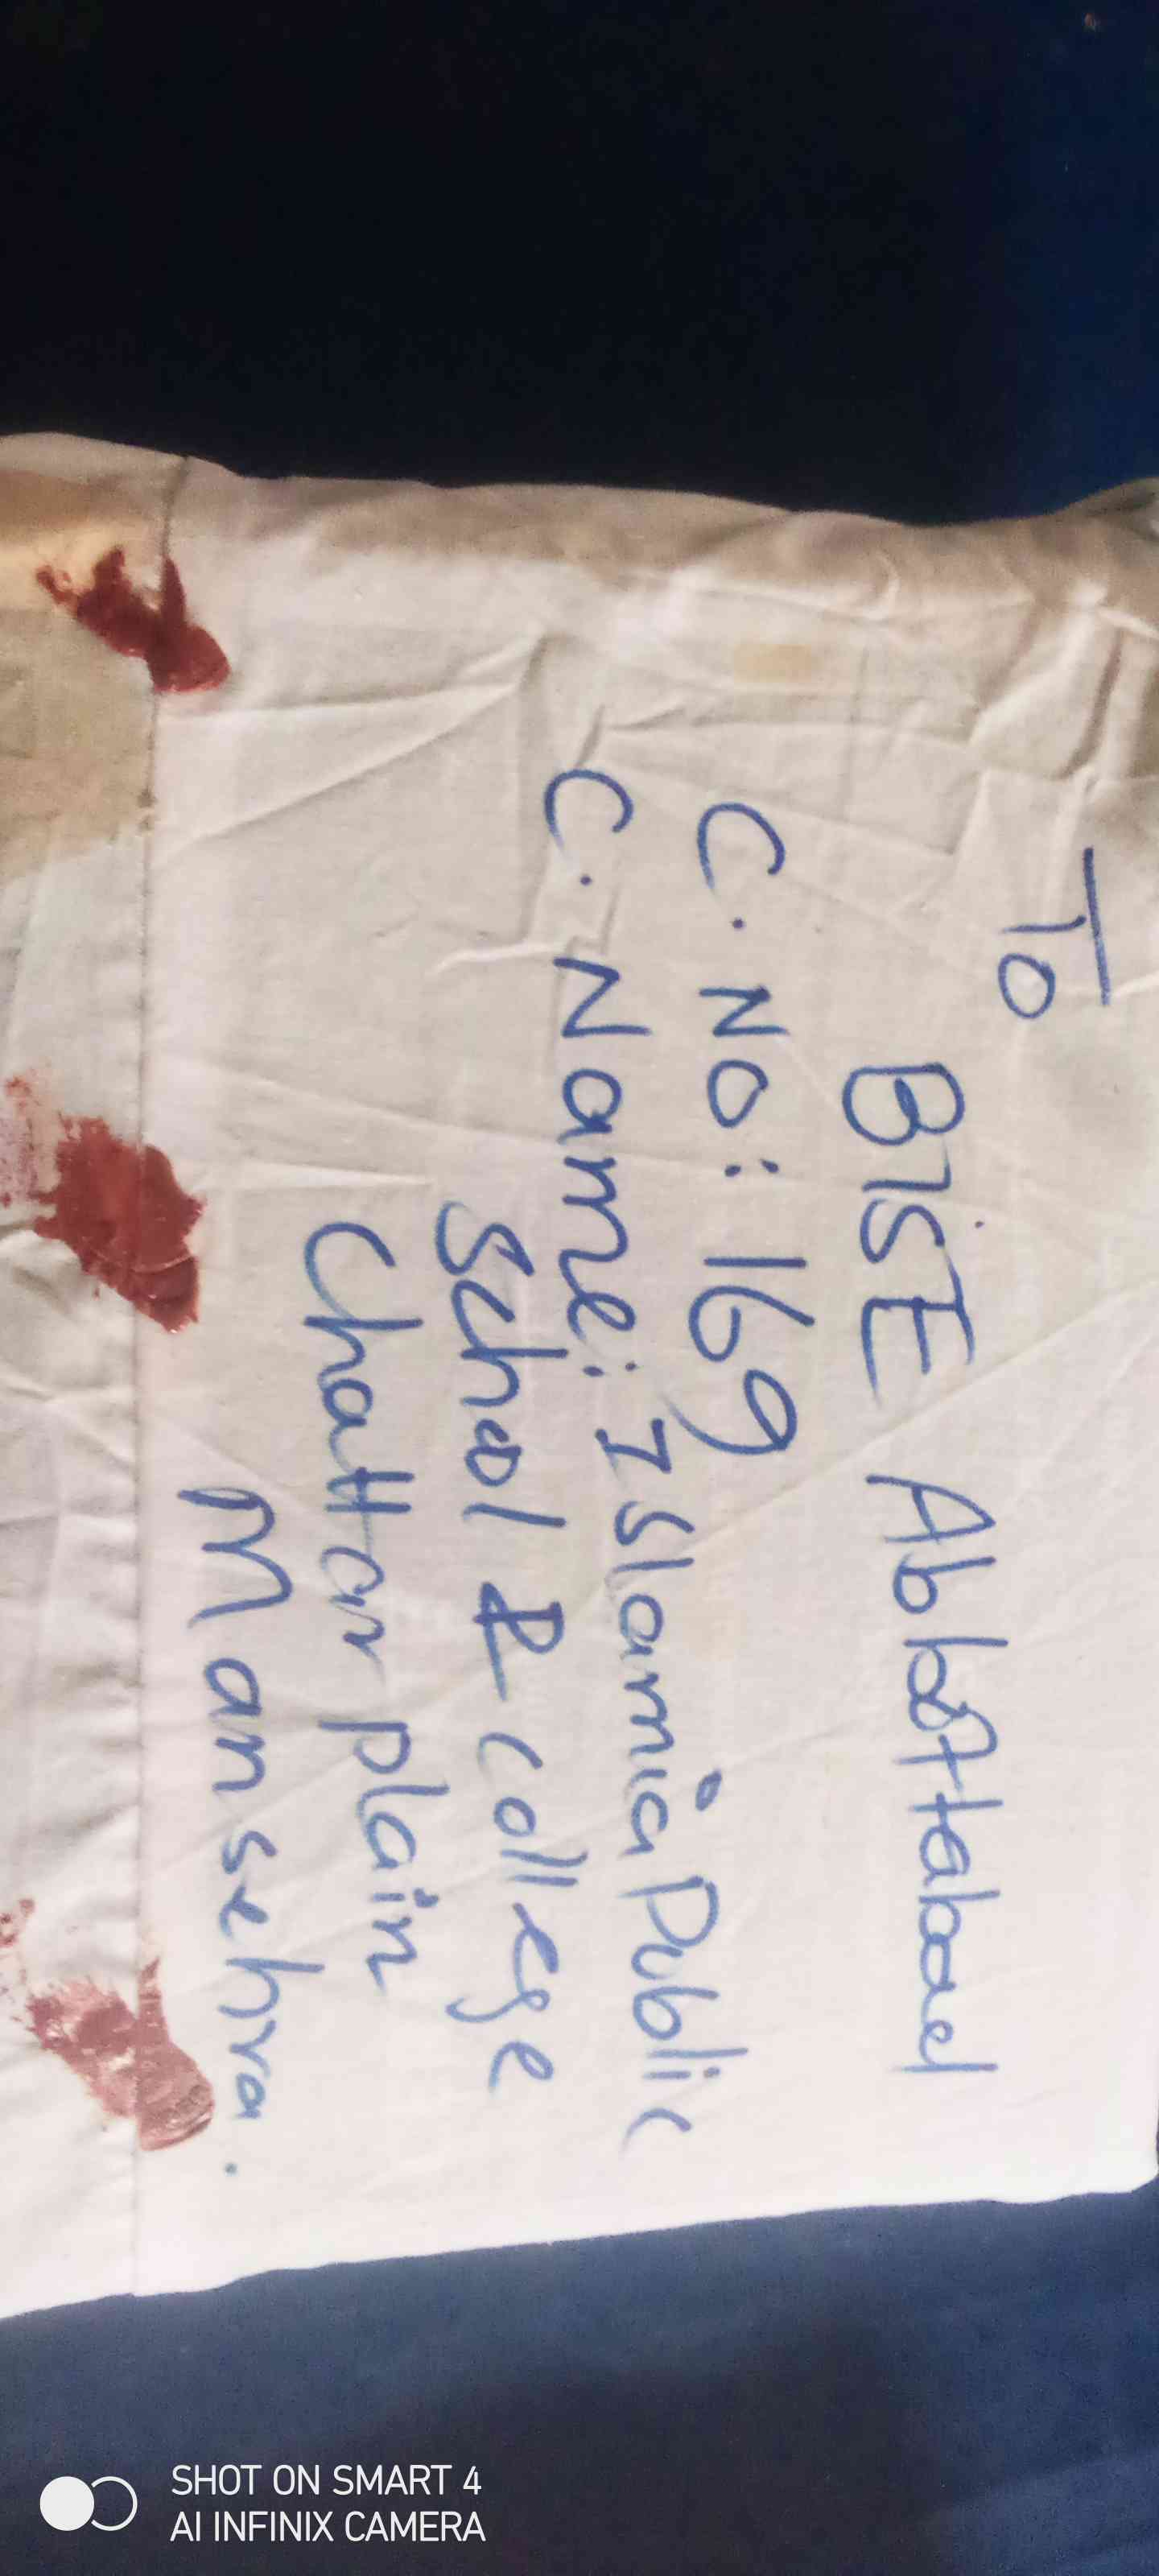 To
BISE Abbottabad
C. No: 169
C. Name: Islamia Public
School & college
Chattar plain
Mansehra.
SHOT ON SMART 4
AI INFINIX CAMERA